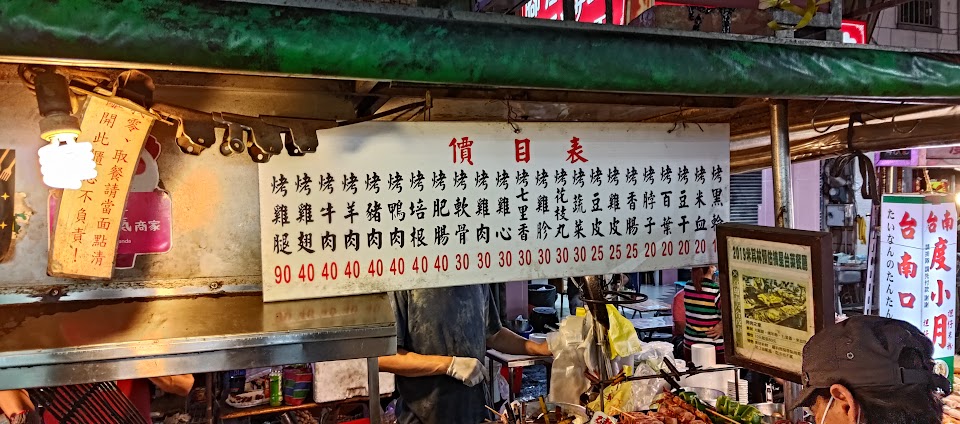 價目表
烤雞腿 90
烤雞翅 40
烤牛肉 40
烤羊肉 40
烤豬肉 40
烤鴨肉 40
烤培根 40
烤肥腸 40
烤軟骨 30
烤雞肉 30
烤雞心 30
烤七里香 30
烤雞胗 30
烤花枝丸 30
烤蔬菜 25
烤豆皮 25
烤雞皮 25
烤香腸 25
烤脖子 20
烤百葉 20
烤豆干 20
烤米血 20
烤黑輪
零、取餐請當面點清
開此櫃
忘不負責!
商家
台南
度小月
台南口
たいなんのたんたん